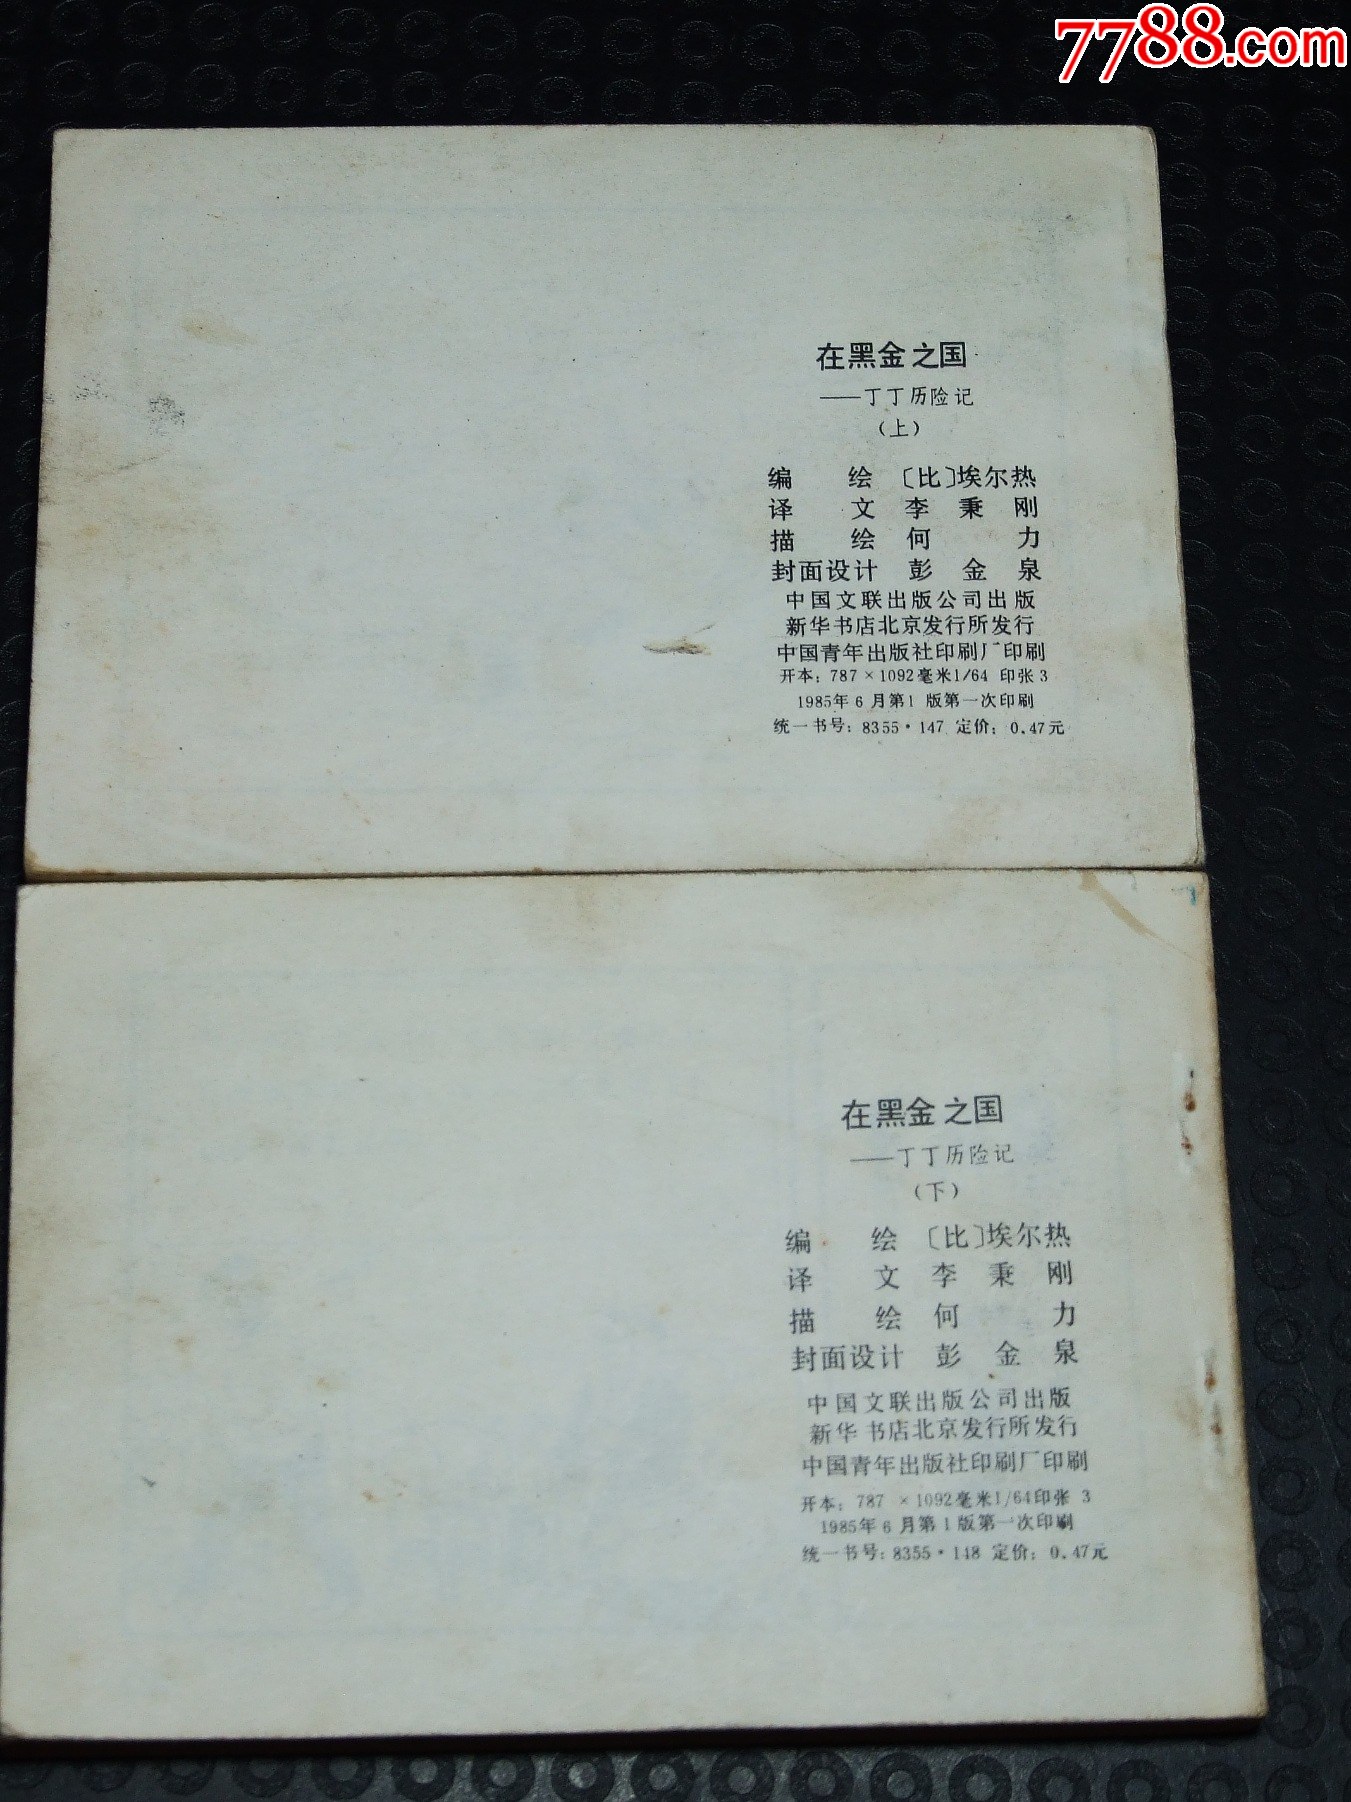 7788.com
在黑金之国
——丁丁历险记
（上）
编　　绘　〔比〕埃尔热
译　　文　李　秉　刚
描　　绘　何　　　力
封面设计　彭　金　泉
中国文联出版公司出版
新华书店北京发行所发行
中国青年出版社印刷厂印刷
开本：787×1092毫米1/64 印张3
1985年6月第1版第一次印刷
统一书号：8355·147 定价：0.47元
在黑金之国
——丁丁历险记
（下）
编　　绘　〔比〕埃尔热
译　　文　李　秉　刚
描　　绘　何　　　力
封面设计　彭　金　泉
中国文联出版公司出版
新华书店北京发行所发行
中国青年出版社印刷厂印刷
开本：787×1092毫米1/64印张3
1985年6月第1版第一次印刷
统一书号：8355·148 定价：0.47元